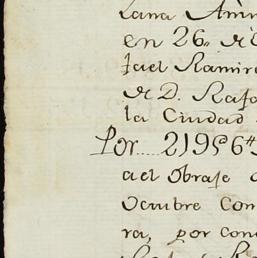 Lana
en 26. de
fael Ramire
de D. Rafa
la Ciudad
Por 21956
del obraje
Octubre Con
ra, por con